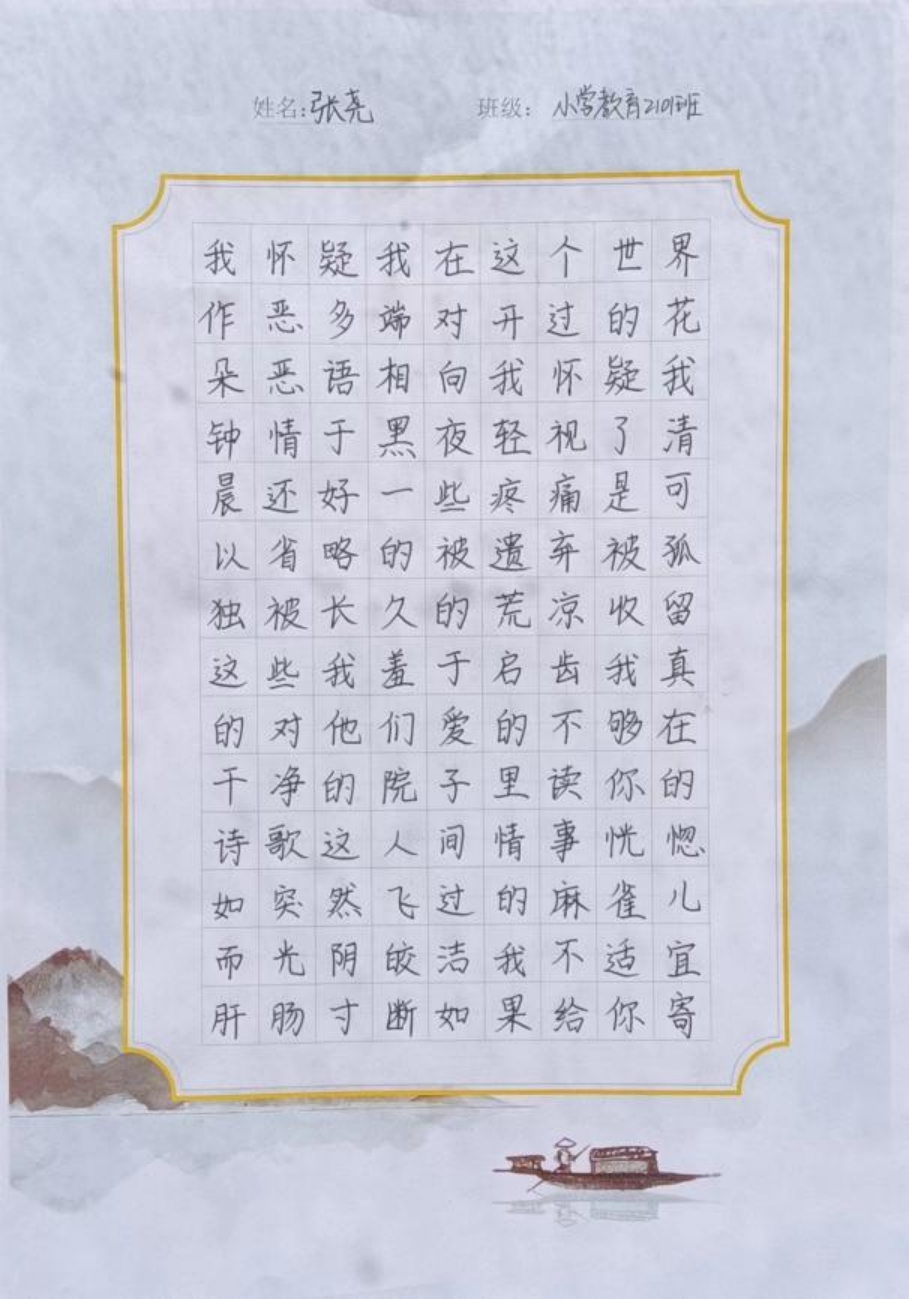 姓名:张尧 班级: 小学教育2101班
我怀疑我在这个世界
作恶多端对开过的花
朵恶语相向我怀疑我
钟情于黑夜轻视了清
晨还好一些疼痛是可
以省略的被遗弃被孤
独被长久的荒凉收留
这些我羞于启齿我真
的对他们爱的不够在
干净的院子里读你的
诗歌这人间情事恍惚
如突然飞过的麻雀儿
而光阴皎洁我不适宜
肝肠寸断如果给你寄